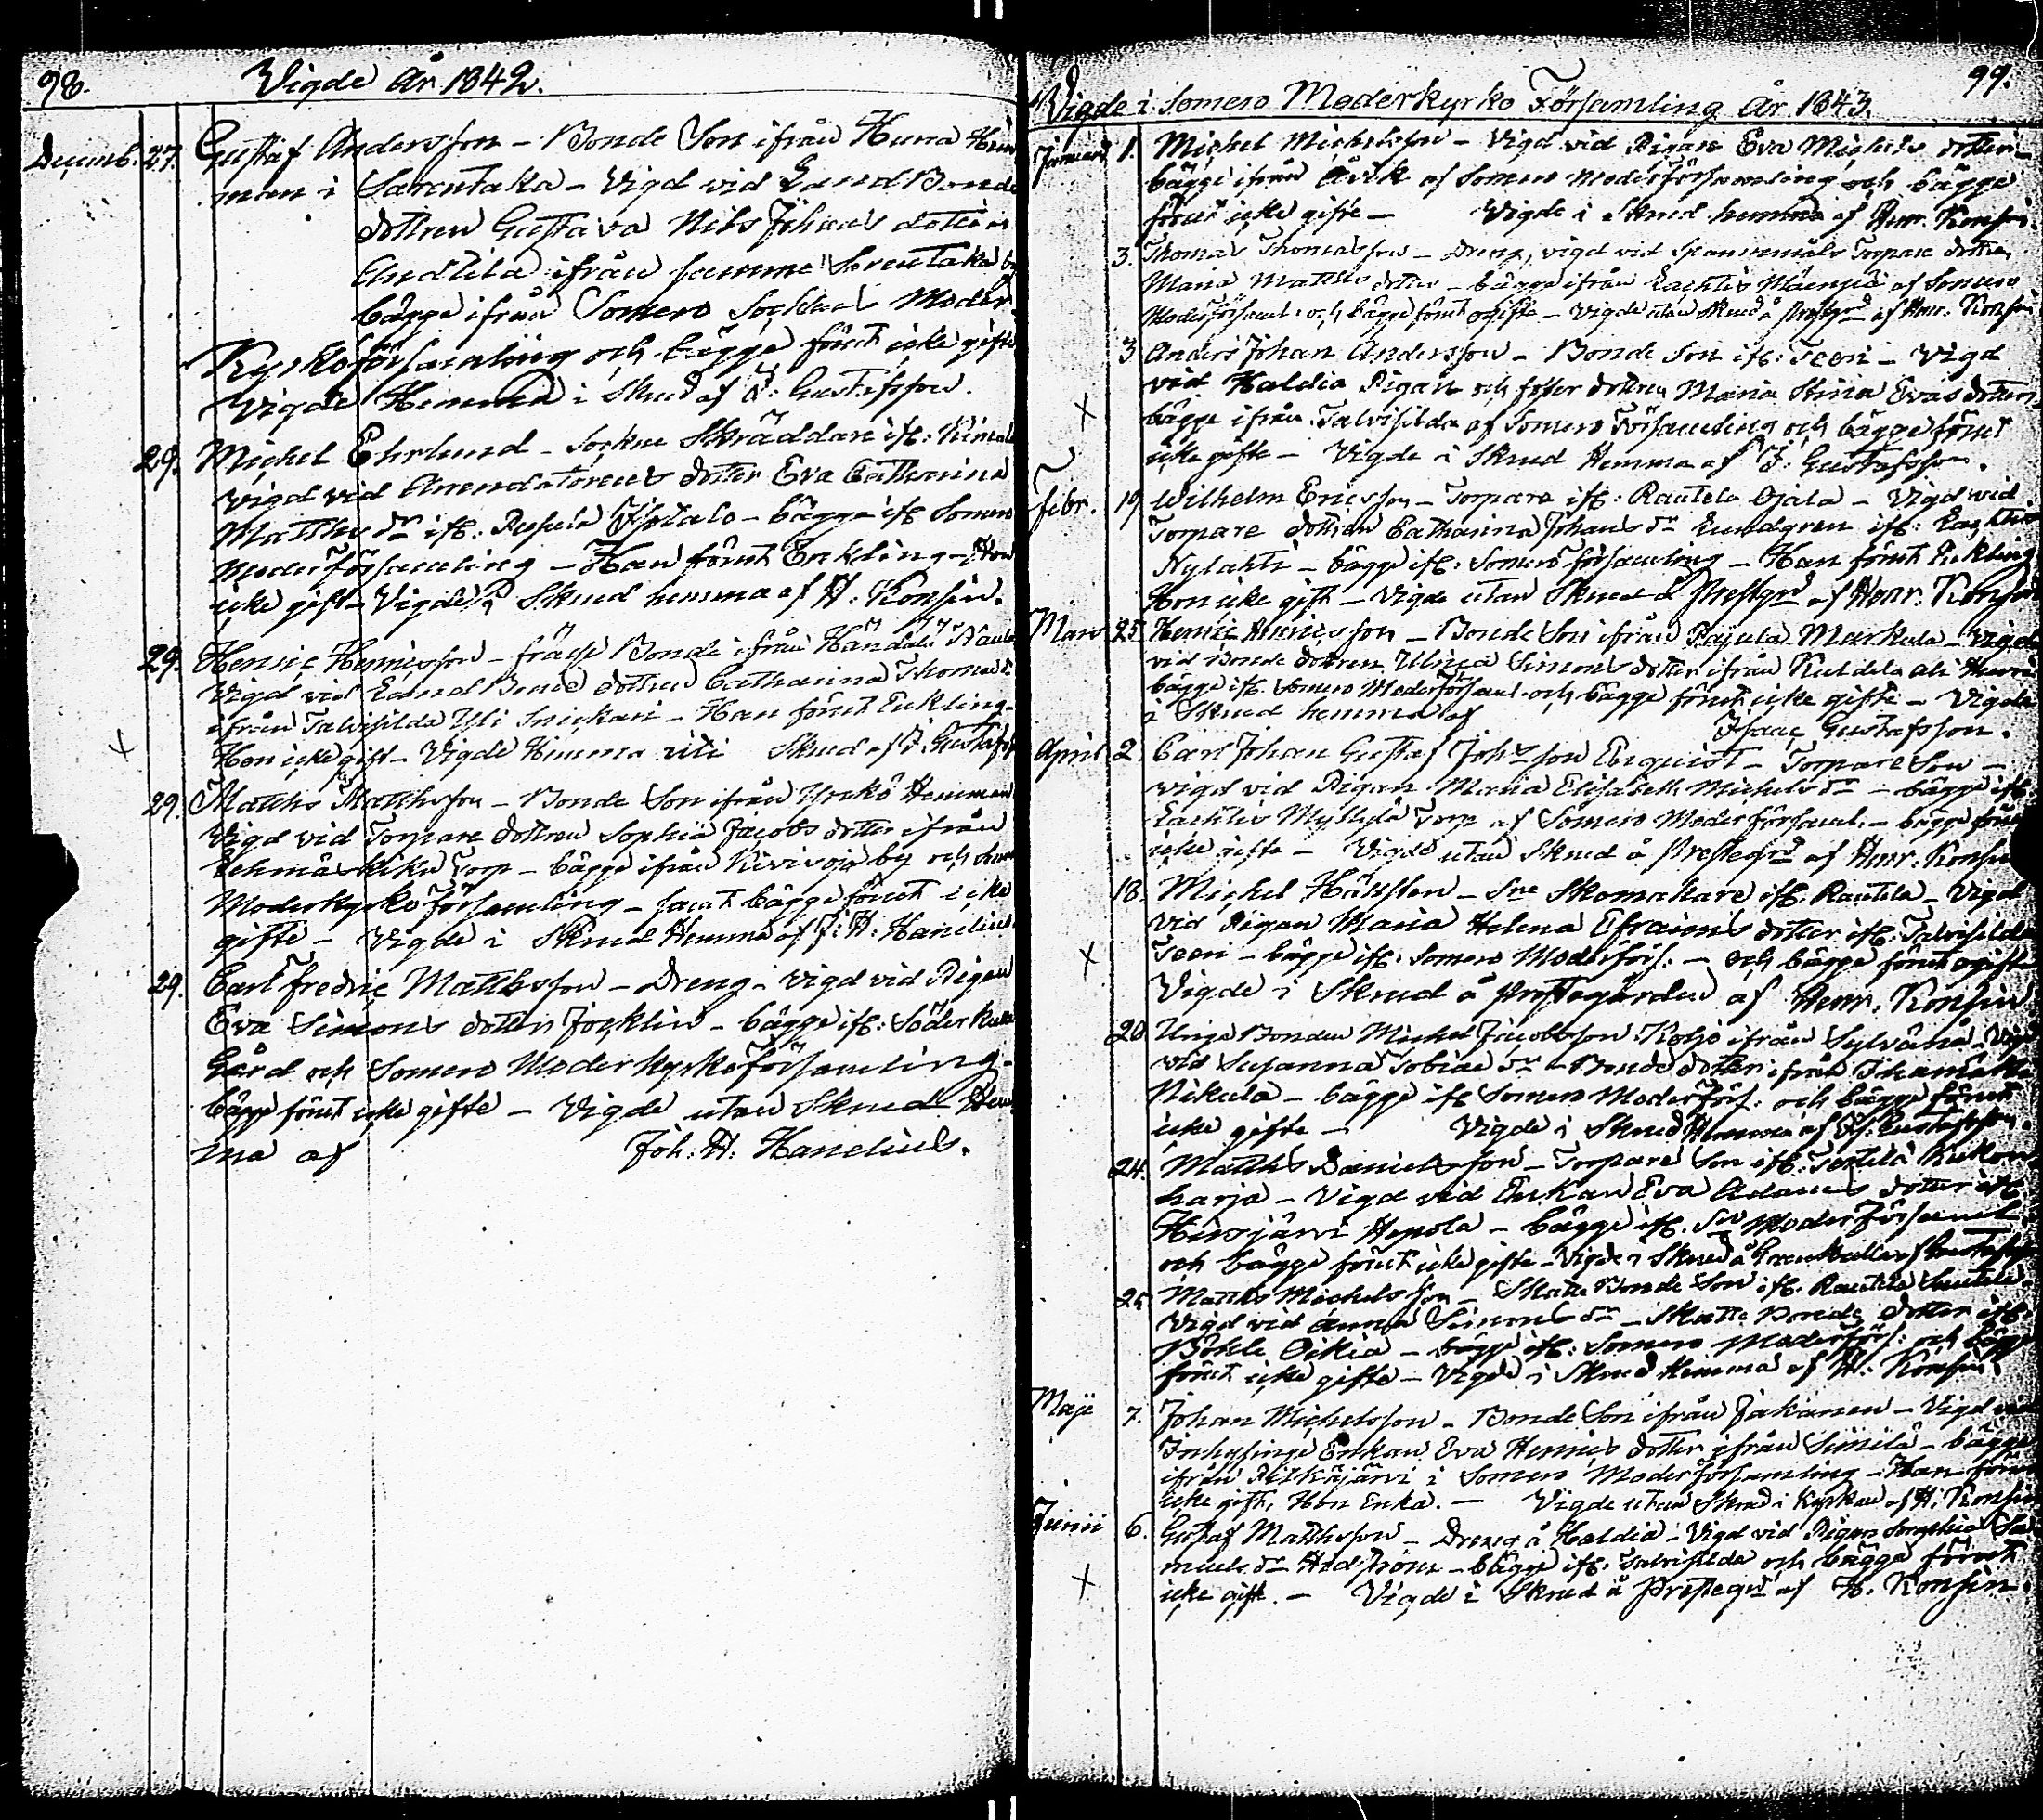 98.
Vigde År 1842.
Decemb. 27. Gustaf Andersson - Bonde Son ifrån Hurra Hem
man i Sarentaka - Vigd vid Land Bonde
dottren Gustava Nils Johans dotter
ifrån samme Sarentaka by
bägge ifrån Somero Sockens Moder
Kyrkoförsamling och bägge förut icke gifte
Vigde Hemma i Skrud af I: Gustafsson.
29. Michel Ehrlund - Sockne Skräddare ifr:
Vigd vid Arendatorens dotter Eva Catharina
Matths dr ifr: - bägge ifr Somero
Moderförsamling - Han förut Enkling - Hon
icke gift - Vigde i Skrud hemma af H: Konsin.
29. Henric Henricsson - frälse Bonde ifrån Händälä
Vigd vid Land Bonde dottren Catharina Thomas
ifrån Talvisilda Yli Snickari - Han förut Enkling -
Hon icke gift - Vigde Hemma uti Skrud af I. Gustafss
29. Matths Matthsson - Bonde Son ifrån Yrckö Hemman
Vigd vid Torpare dottren Sophia Jacobs dotter ifrån
Torp - bägge ifrån Kivisoja by och
Moderkyrkoförsamling - samt bägge förut icke
gifte - Vigde i Skrud Hemma af J: H: Hanelius
29. Carl Fredric Matthsson - Dreng - Vigd vid Pigan
Eva Simons dotter Jocklin - bägge ifr: Söderkulla
Gård och Somero Moderkyrkoförsamling -
bägge förut icke gifte - Vigde utan Skrud Hem
ma af Joh. H. Hanelius.
99.
Vigde i Somero Moderkyrko Församling År 1843.
Januarii 1. Michel Michelsson - Vigd vid Pigan Eva Michels dotter -
bägge ifrån Åvik af Somero Moderförsamling och bägge
förut icke gifte - Vigde i Skrud hemma af Henr. Konsin.
3. Thomas Thomasson - Dreng, vigd vid Spannemåls Torpare dotter
Maria Matths dotter - bägge ifrån Lachtis Mäenpä af Somero
Moderförsaml: och bägge förut ogifte - Vigde utan Skrud å Prestgrd af Henr. Konsin
3 Anders Johan Andersson - Bonde Son ifr: Teeri - Vigd
vid Haldia Pigan och foster dottren Maria Stina Evas dotter
bägge ifrån Talvisilda af Somero Församling och bägge förut
icke gifte - Vigde i Skrud Hemma af I: Gustafsson.
Febr. 19 Wilhelm Ericsson - Torpare ifr: Rautela Ojala - Vigd vid
Torpare dottren Catharina Johans dr Lundgren ifr: Lachtis
Nylahti - bägge ifr: Somero församling - Han förut Enkling
Hon icke gift - Vigde utan Skrud å Prestgrd af Henr. Konsin
Mars 25. Henric Henricsson - Bonde Son ifrån Pajula Markula - Vigd
vid Bonde dottren Ulrica Simons dotter ifrån Kuldela ali Hurri
bägge ifr. Somero Moderförsaml. och bägge förut icke gifte - Vigde
i Skrud hemma af Isaac Gustafsson.
April 2. Carl Johan Gustaf Johsson Enquist - Torpare Son -
vigd vid Pigan Maria Elisabeth Michels dr - bägge ifr.
Lachtis Myllylä Torp af Somero Moderförsaml. - bägge förut
icke gifte - Vigde utan Skrud å Prestegrd af Henr. Konsin
18. Michel Hällsten - Sne Skomakare ifr. Rautela - Vigd
vid Pigan Maria Helena Efraims dotter ifr. Talvisilda
Teeri - bägge ifr: Somero Moderförs: - och bägge förut ogifte
Vigde i Skrud å Prestegården af Henr. Konsin
20. Unge Bonden Michel Jacobsson Kohjo ifrån Sylvänä - Vigd
vid Susanna Tobiae dr - Bonde dotter ifrån
Nikula - bägge ifr Somero Moderförs: och bägge förut
icke gifte - Vigde i Skrud Hemma af Gustafsson.
24. Matths Danielsson - Torpare Son ifr: Terttilä
harja - Vigd vid Enkan Eva Adams dotter ifr
Hirsjärvi Hepola - bägge ifr. Sro Moderförsaml
och bägge förut icke gifte - Vigde i Skrud å af Gustafsson
25. Matths Michelsson - Skatte Bonde Son ifr. Rautela
Vigd vid Anna Simons dr - Skatte Bonde dotter ifr.
Pöhle Oikia - bägge ifr: Somero Moderförs: och bägge
förut icke gifte - Vigde i Skrud Hemma af H: Konsin.
Maji 7. Johan Michelsson - Bonde Son ifrån Jakanen - Vigd vid
Inhysinge Enkan Eva Henrics dotter ifrån Similä - bägge
ifrån Pitkäjärvi i Somero Moderförsamling - Han förut
icke gift, Hon Enka. - Vigde utan Skrud i Kyrkan af H. Konsin
Junii 6. Gustaf Matthsson - Dreng å Haldia - Vigd vid Pigan Sophia Sa
muels dr Hedström - bägge ifr. Talvisilda och bägge förut
icke gift. - Vigde i Skrud å Prestegrd af H. Konsin.